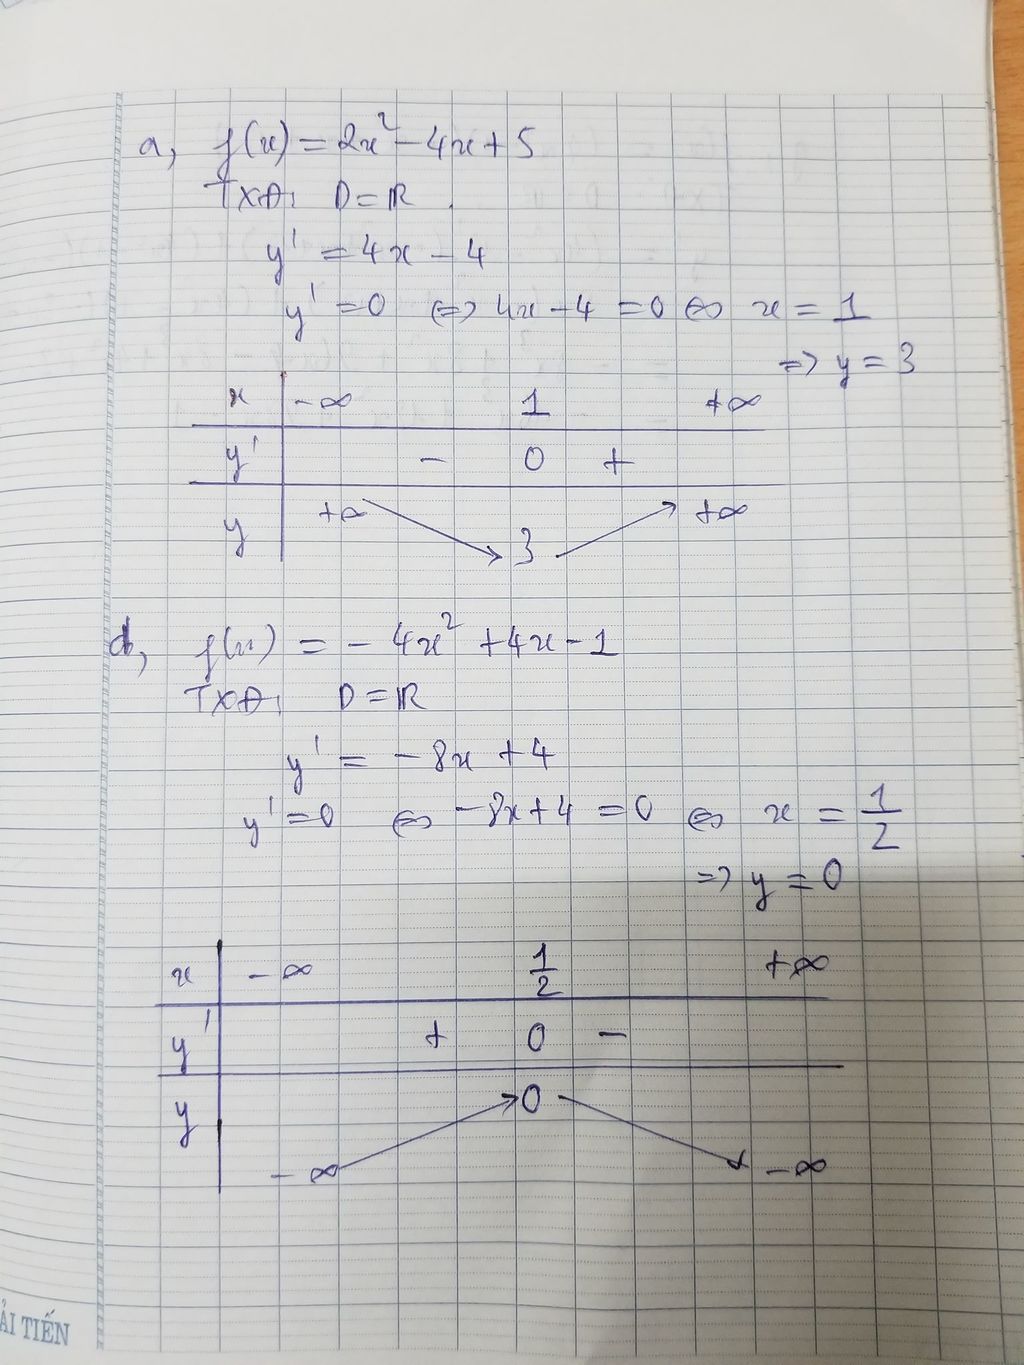 a, f(x) = 2x² - 4x + 5
TXĐ: D = ℝ.
y' = 4x - 4
y' = 0 ⇔ 4x - 4 = 0 ⇔ x = 1
⇒ y = 3
x -∞ 1 +∞
y' - 0 +
y +∞ 3 +∞
d, f(x) = - 4x² + 4x - 1
TXĐ: D = ℝ
y' = - 8x + 4
y' = 0 ⇔ -8x + 4 = 0 ⇔ x = 1/2
⇒ y = 0
x -∞ 1/2 +∞
y' + 0 -
y 0
-∞ -∞
ẢI TIẾN